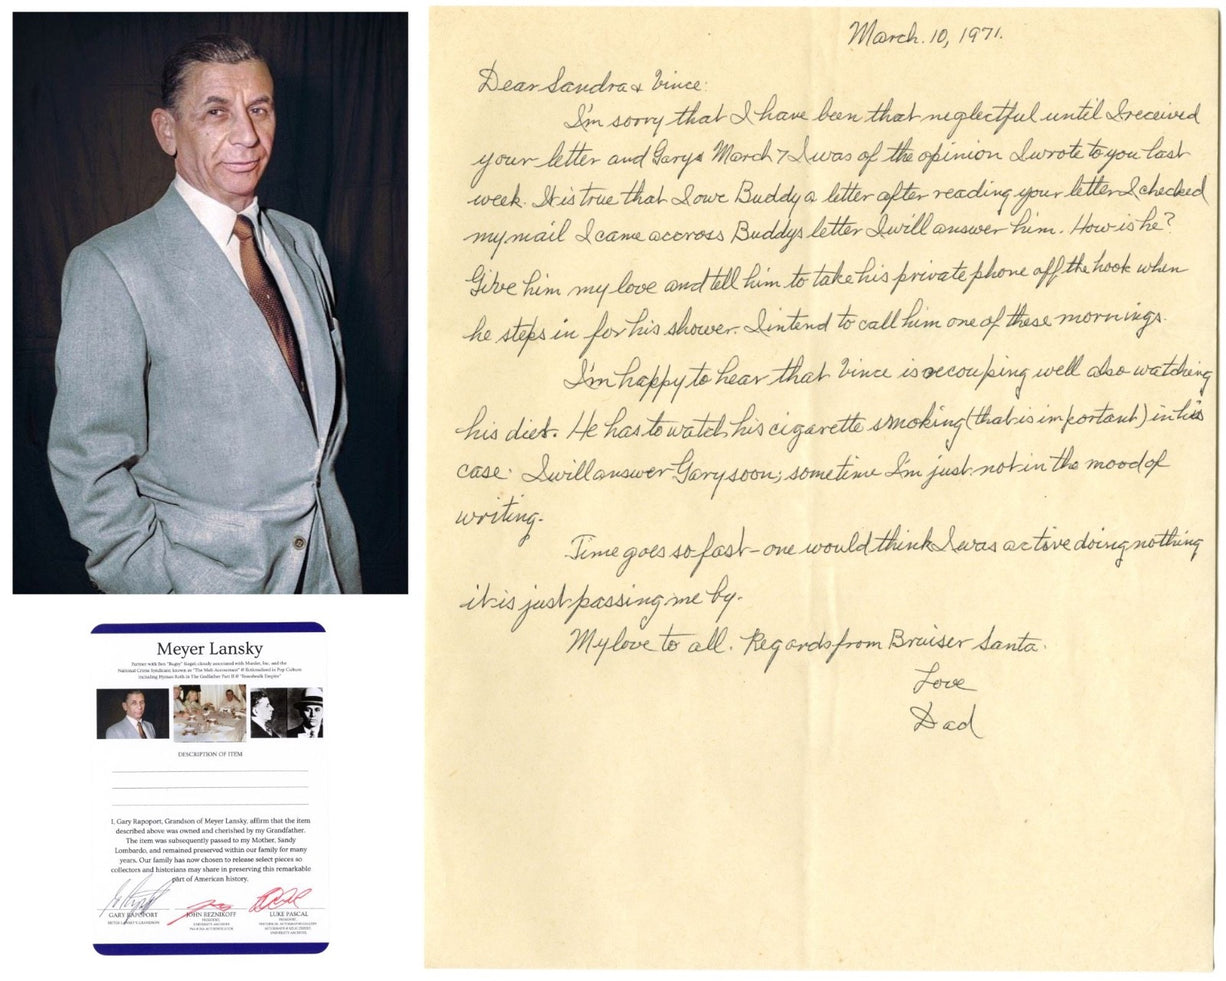 March. 10, 1971.
Dear Sandra & Vince:
I'm sorry that I have been that neglectful until I received
your letter and Garys March 7 I was of the opinion I wrote to you last
week. It is true that I owe Buddy a letter after reading your letter I checked
my mail I came accross Buddys letter I will answer him. How is he?
Give him my love and tell him to take his private phone off the hook when
he steps in for his shower. I intend to call him one of these mornings.
I'm happy to hear that Vince is recouping well also watching
his diet. He has to watch his cigarette smoking (that is important) in his
case. I will answer Gary soon; sometime I'm just not in the mood of
writing.
Time goes so fast - one would think I was active doing nothing
it is just passing me by.
My love to all. Regards from Bruiser Santa.
Love
Dad
Meyer Lansky
Partner with Ben "Bugsy" Siegel; closely associated with Murder, Inc. and the
National Crime Syndicate; known as "The Mob Accountant" & fictionalized in Pop Culture
including Hyman Roth in The Godfather Part II & "Boardwalk Empire"
DESCRIPTION OF ITEM
I, Gary Rapoport, Grandson of Meyer Lansky, affirm that the item
described above was owned and cherished by my Grandfather.
The item was subsequently passed to my Mother, Sandy
Lombardo, and remained preserved within our family for many
years. Our family has now chosen to release select pieces so
collectors and historians may share in preserving this remarkable
part of American history.
GARY RAPOPORT
MEYER LANSKY'S GRANDSON
JOHN REZNIKOFF
PRESIDENT
UNIVERSITY ARCHIVES
PSA/DNA AUTHENTICATOR
LUKE PASCAL
UNIVERSITY ARCHIVES